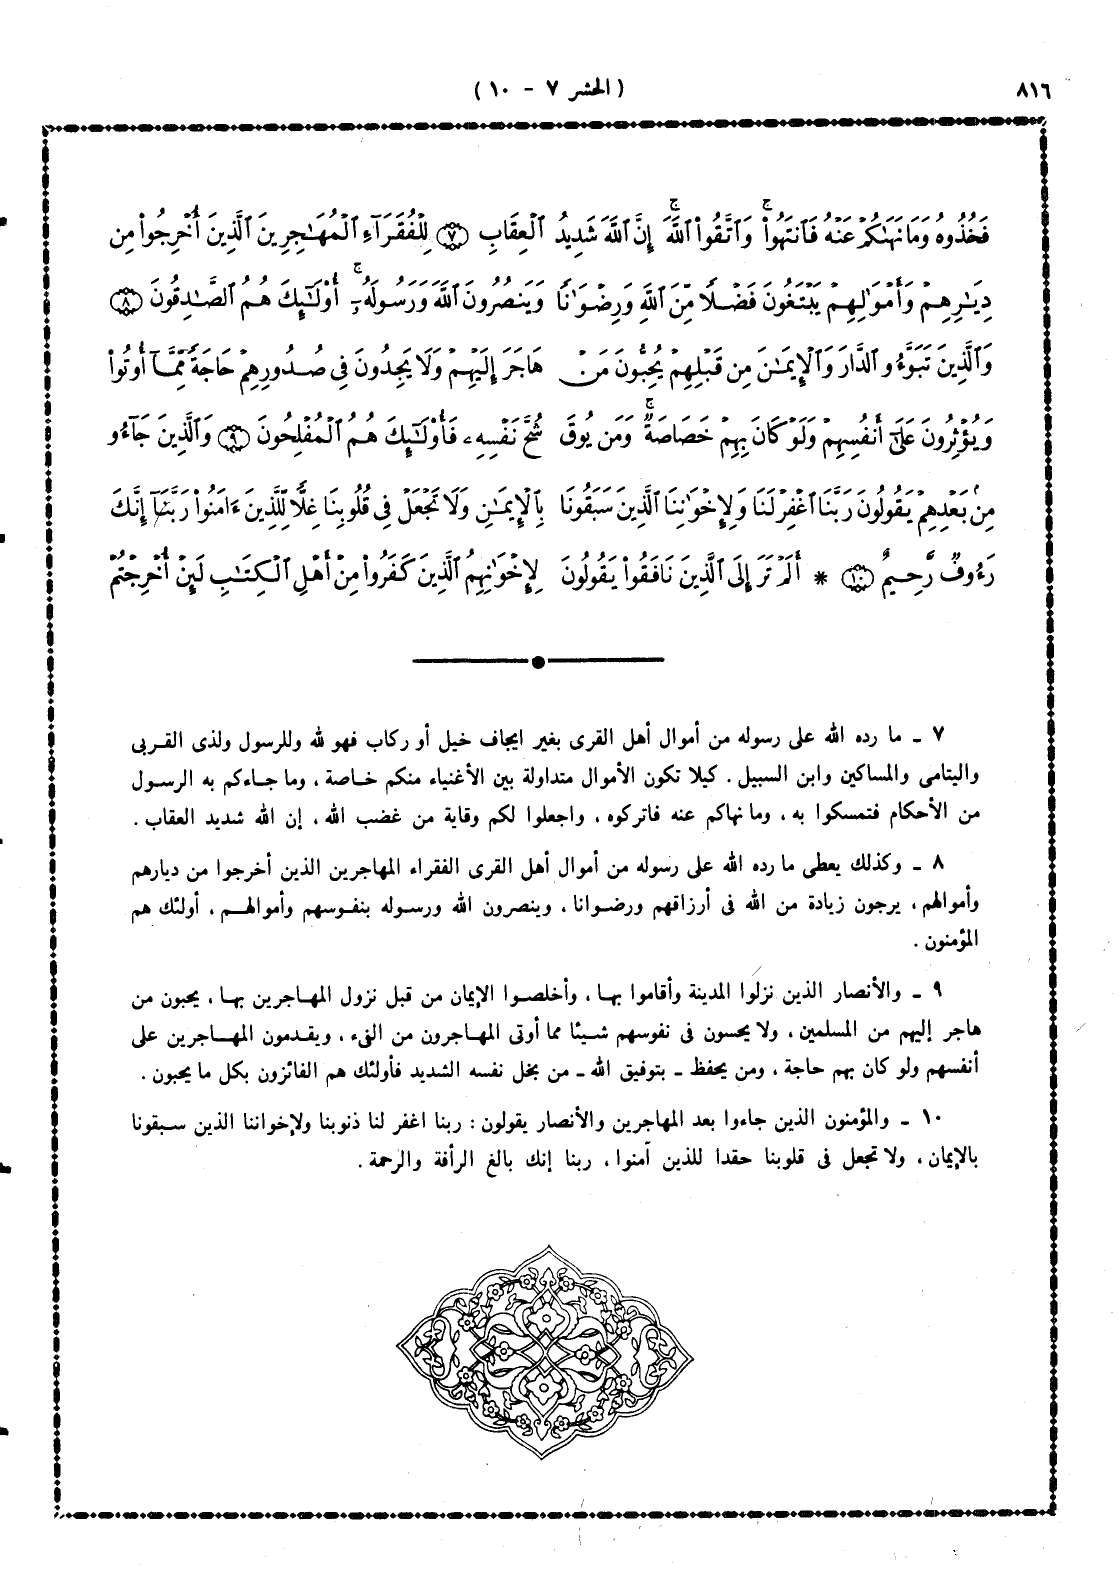 ٨١٦
( الحشر ٧ - ١٠ )
فَخُذُوهُ وَمَا نَهَىٰكُمْ عَنْهُ فَٱنتَهُوا۟ ۚ وَٱتَّقُوا۟ ٱللَّهَ ۚ إِنَّ ٱللَّهَ شَدِيدُ ٱلْعِقَابِ ۝٧ لِلْفُقَرَآءِ ٱلْمُهَـٰجِرِينَ ٱلَّذِينَ أُخْرِجُوا۟ مِن
دِيَـٰرِهِمْ وَأَمْوَٰلِهِمْ يَبْتَغُونَ فَضْلًا مِّنَ ٱللَّهِ وَرِضْوَٰنًا وَيَنصُرُونَ ٱللَّهَ وَرَسُولَهُۥٓ ۚ أُو۟لَـٰٓئِكَ هُمُ ٱلصَّـٰدِقُونَ ۝٨
وَٱلَّذِينَ تَبَوَّءُو ٱلدَّارَ وَٱلْإِيمَـٰنَ مِن قَبْلِهِمْ يُحِبُّونَ مَنْ هَاجَرَ إِلَيْهِمْ وَلَا يَجِدُونَ فِى صُدُورِهِمْ حَاجَةً مِّمَّآ أُوتُوا۟
وَيُؤْثِرُونَ عَلَىٰٓ أَنفُسِهِمْ وَلَوْ كَانَ بِهِمْ خَصَاصَةٌ ۚ وَمَن يُوقَ شُحَّ نَفْسِهِۦ فَأُو۟لَـٰٓئِكَ هُمُ ٱلْمُفْلِحُونَ ۝٩ وَٱلَّذِينَ جَآءُو
مِنۢ بَعْدِهِمْ يَقُولُونَ رَبَّنَا ٱغْفِرْ لَنَا وَلِإِخْوَٰنِنَا ٱلَّذِينَ سَبَقُونَا بِٱلْإِيمَـٰنِ وَلَا تَجْعَلْ فِى قُلُوبِنَا غِلًّا لِّلَّذِينَ ءَامَنُوا۟ رَبَّنَآ إِنَّكَ
رَءُوفٌ رَّحِيمٌ ۝١٠ * أَلَمْ تَرَ إِلَى ٱلَّذِينَ نَافَقُوا۟ يَقُولُونَ لِإِخْوَٰنِهِمُ ٱلَّذِينَ كَفَرُوا۟ مِنْ أَهْلِ ٱلْكِتَـٰبِ لَئِنْ أُخْرِجْتُمْ
٧ ـ ما رده الله على رسوله من أموال أهل القرى بغير ايجاف خيل أو ركاب فهو لله وللرسول ولذى القربى
واليتامى والمساكين وابن السبيل . كيلا تكون الأموال متداولة بين الأغنياء منكم خاصة ، وما جاءكم به الرسول
من الأحكام فتمسكوا به ، وما نهاكم عنه فاتركوه ، واجعلوا لكم وقاية من غضب الله ، إن الله شديد العقاب .
٨ ـ وكذلك يعطى ما رده الله على رسوله من أموال أهل القرى الفقراء المهاجرين الذين أخرجوا من ديارهم
وأموالهم ، يرجون زيادة من الله فى أرزاقهم ورضوانا ، وينصرون الله ورسوله بنفوسهم وأموالهم ، أولئك هم
المؤمنون .
٩ ـ والأنصار الذين نزلوا المدينة وأقاموا بها ، وأخلصوا الإيمان من قبل نزول المهاجرين بها ، يحبون من
هاجر إليهم من المسلمين ، ولا يحسون فى نفوسهم شيئا مما أوتى المهاجرون من الفىء ، ويقدمون المهاجرين على
أنفسهم ولو كان بهم حاجة ، ومن يحفظ ـ بتوفيق الله ـ من بخل نفسه الشديد فأولئك هم الفائزون بكل ما يحبون .
١٠ ـ والمؤمنون الذين جاءوا بعد المهاجرين والأنصار يقولون : ربنا اغفر لنا ذنوبنا ولإخواننا الذين سبقونا
بالإيمان ، ولا تجعل فى قلوبنا حقدا للذين آمنوا ، ربنا إنك بالغ الرأفة والرحمة .